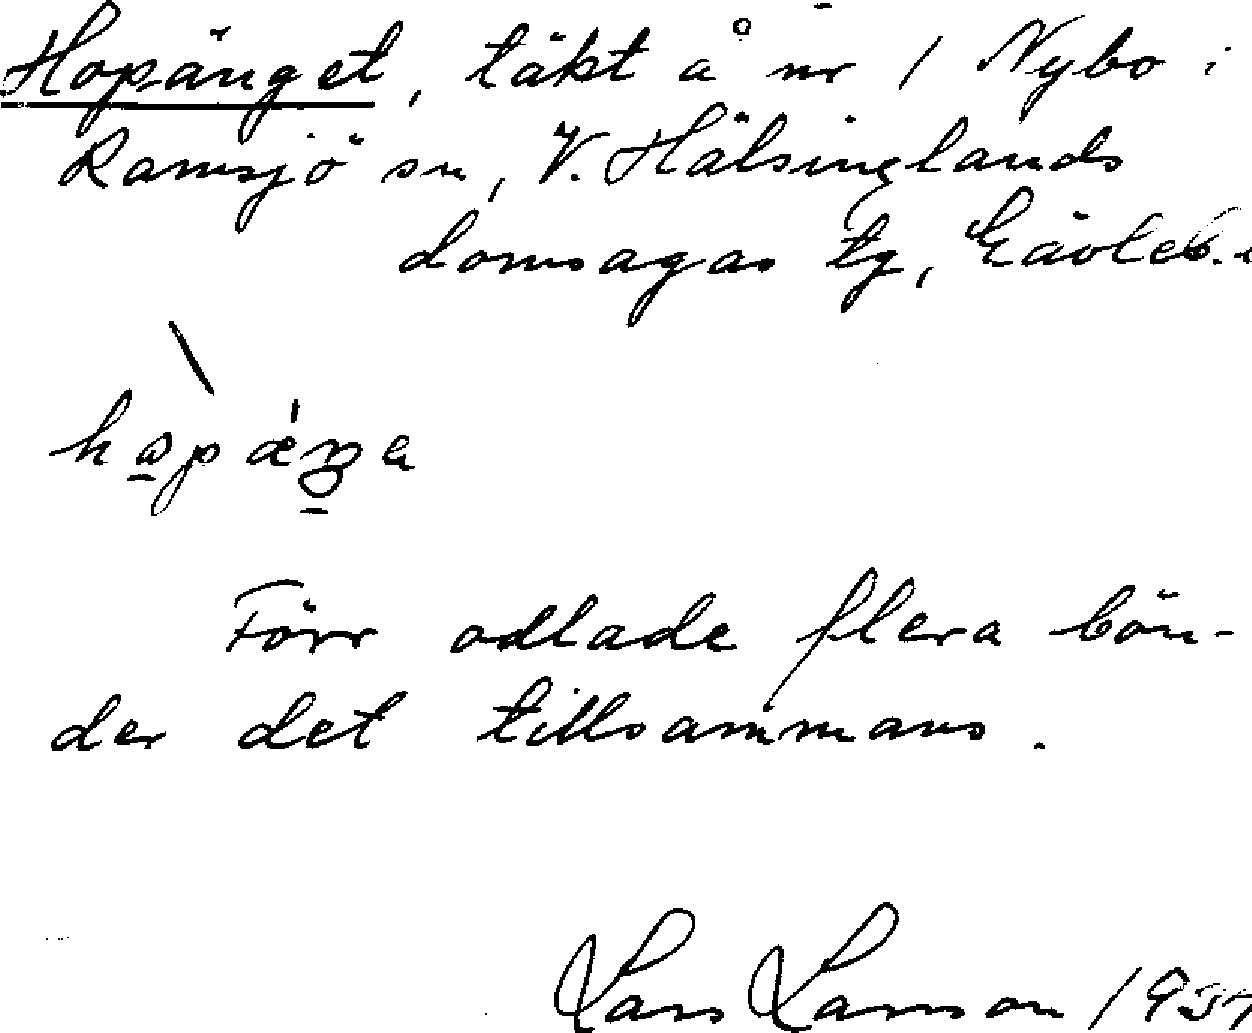 Hopänget, täkt å nr 1 Nybo i
Ramsjö sn, V. Hälsinglands
domsagas tg, Gävleb.
Förr odlade flera bön-
der det tillsammans.
Lars Larsson